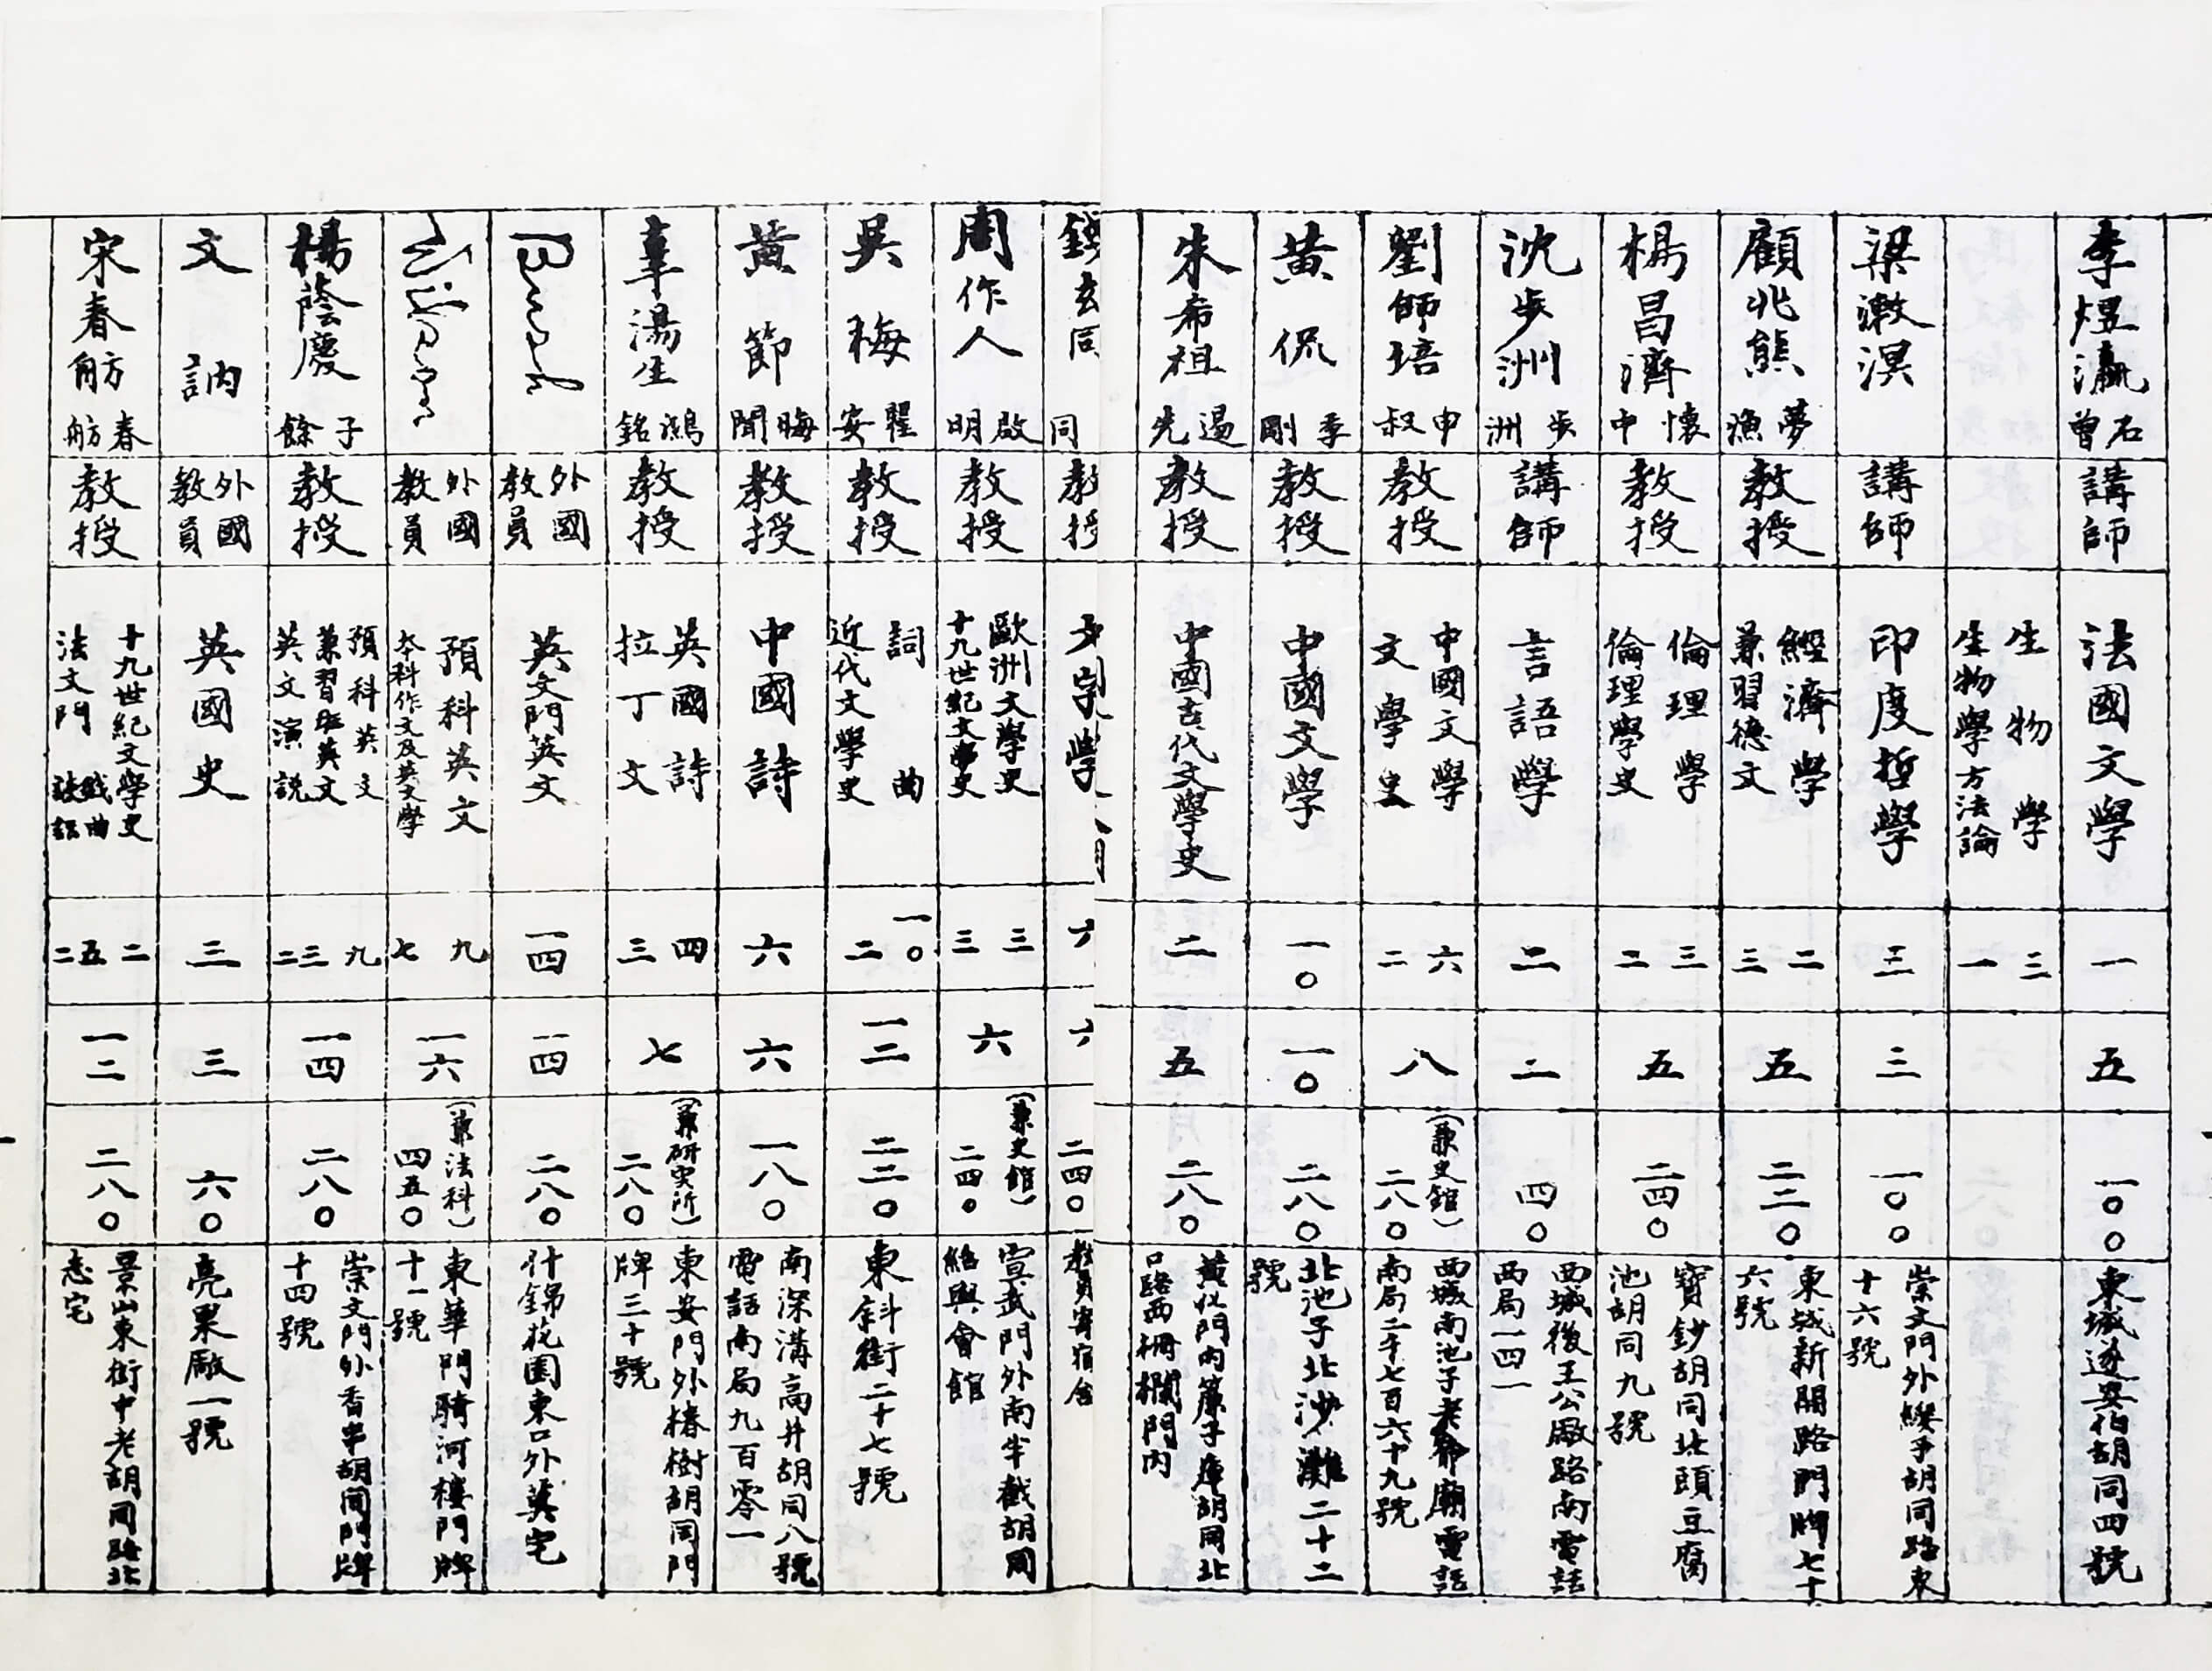 李煜瀛
石曾
講師
法國文學
一
五
一〇〇
東城遂安伯胡同四號
生物學
生物學方法論
三
一
梁漱溟
講師
印度哲學
三
三
一〇〇
崇文門外纓子胡同路東
十六號
顧兆熊
夢漁
教授
經濟學
兼習德文
二
三
五
二二〇
東城新開路門牌七十
六號
楊昌濟
懷中
教授
倫理學
倫理學史
三
二
五
二四〇
寶鈔胡同北頭豆腐
池胡同九號
沈步洲
步洲
講師
言語學
二
二
四〇
西城後王公廠路南電話
西局一四一
劉師培
申叔
教授
中國文學
文學史
六
二
八
(兼史館)
二八〇
西城南池子老爺廟電話
南局二千七百六十九號
黃侃
季剛
教授
中國文學
一〇
一〇
二八〇
北池子北沙灘二十二
號
朱希祖
逷先
教授
中國古代文學史
二
五
二八〇
黃化門內簾子庫胡同北
口路西柵欄門內
錢玄同
同
教授
文字學
六
六
二四〇
教員寄宿舍
周作人
啟明
教授
歐洲文學史
十九世紀文學史
三
三
六
(兼史館)
二四〇
宣武門外南半截胡同
紹興會館
吳梅
瞿安
教授
詞曲
近代文學史
一〇
二
一二
二二〇
東斜街二十七號
黃節
晦聞
教授
中國詩
六
六
一八〇
南深溝高井胡同八號
電話南局九百零一
辜湯生
鴻銘
教授
英國詩
拉丁文
四
三
七
(兼研究所)
二八〇
東安門外椿樹胡同門
牌三十號
外國
教員
英文門英文
一四
一四
二八〇
什錦花園東口外英宅
外國
教員
預科英文
本科作文及英文學
九
七
一六
(兼法科)
四五〇
東華門騎河樓門牌
十一號
楊蔭慶
子餘
教授
預科英文
兼習班英文
英文演說
九
三
二
一四
二八〇
崇文門外香串胡同門牌
十四號
文訥
外國
教員
英國史
三
三
六〇
亮果廠一號
宋春舫
春舫
教授
十九世紀文學史
戲曲
法文門 法語
二
五
二
一二
二八〇
景山東街中老胡同路北
志宅